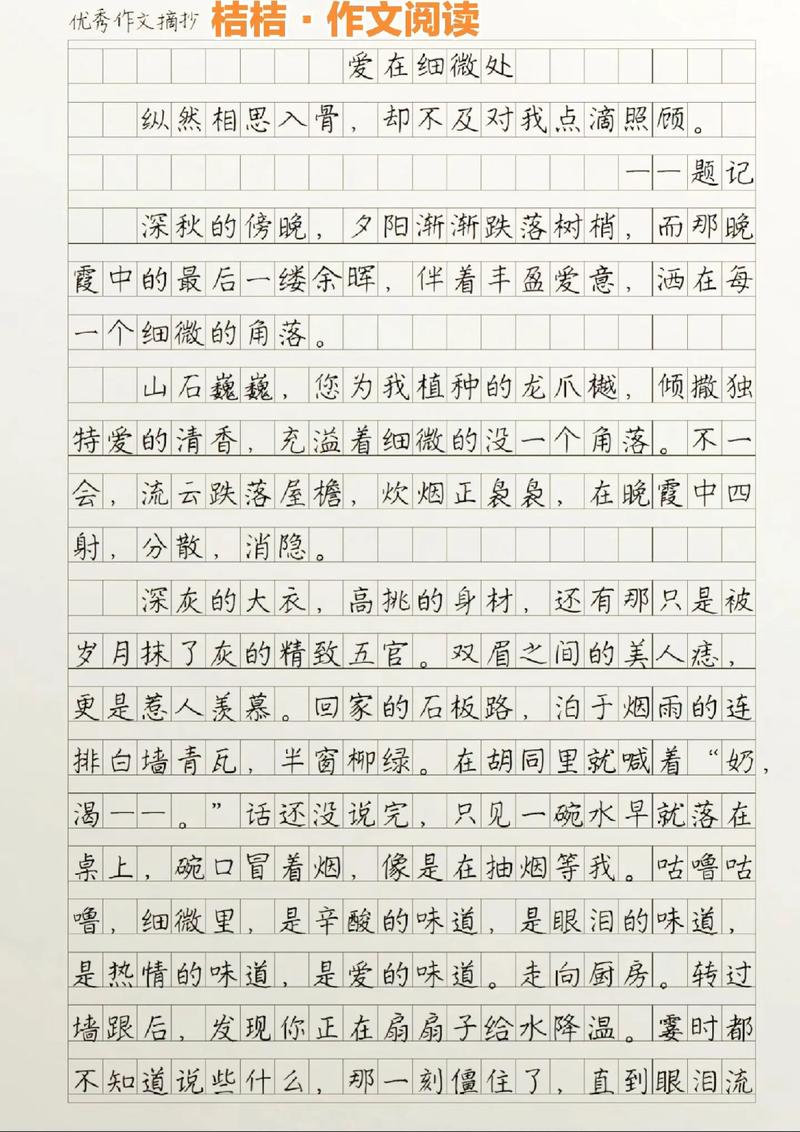 优秀作文摘抄 桔桔·作文阅读
爱在细微处
纵然相思入骨，却不及对我点滴照顾。
——题记
深秋的傍晚，夕阳渐渐跌落树梢，而那晚
霞中的最后一缕余晖，伴着丰盈爱意，洒在每
一个细微的角落。
山石巍巍，您为我植种的龙爪樾，倾撒独
特爱的清香，充溢着细微的没一个角落。不一
会，流云跌落屋檐，炊烟正袅袅，在晚霞中四
射，分散，消隐。
深灰的大衣，高挑的身材，还有那只是被
岁月抹了灰的精致五官。双眉之间的美人痣，
更是惹人羡慕。回家的石板路，泊于烟雨的连
排白墙青瓦，半窗柳绿。在胡同里就喊着“奶，
渴——。”话还没说完，只见一碗水早就落在
桌上，碗口冒着烟，像是在抽烟等我。咕噜咕
噜，细微里，是辛酸的味道，是眼泪的味道，
是热情的味道，是爱的味道。走向厨房。转过
墙跟后，发现你正在扇扇子给水降温。霎时都
不知道说些什么，那一刻僵住了，直到眼泪流